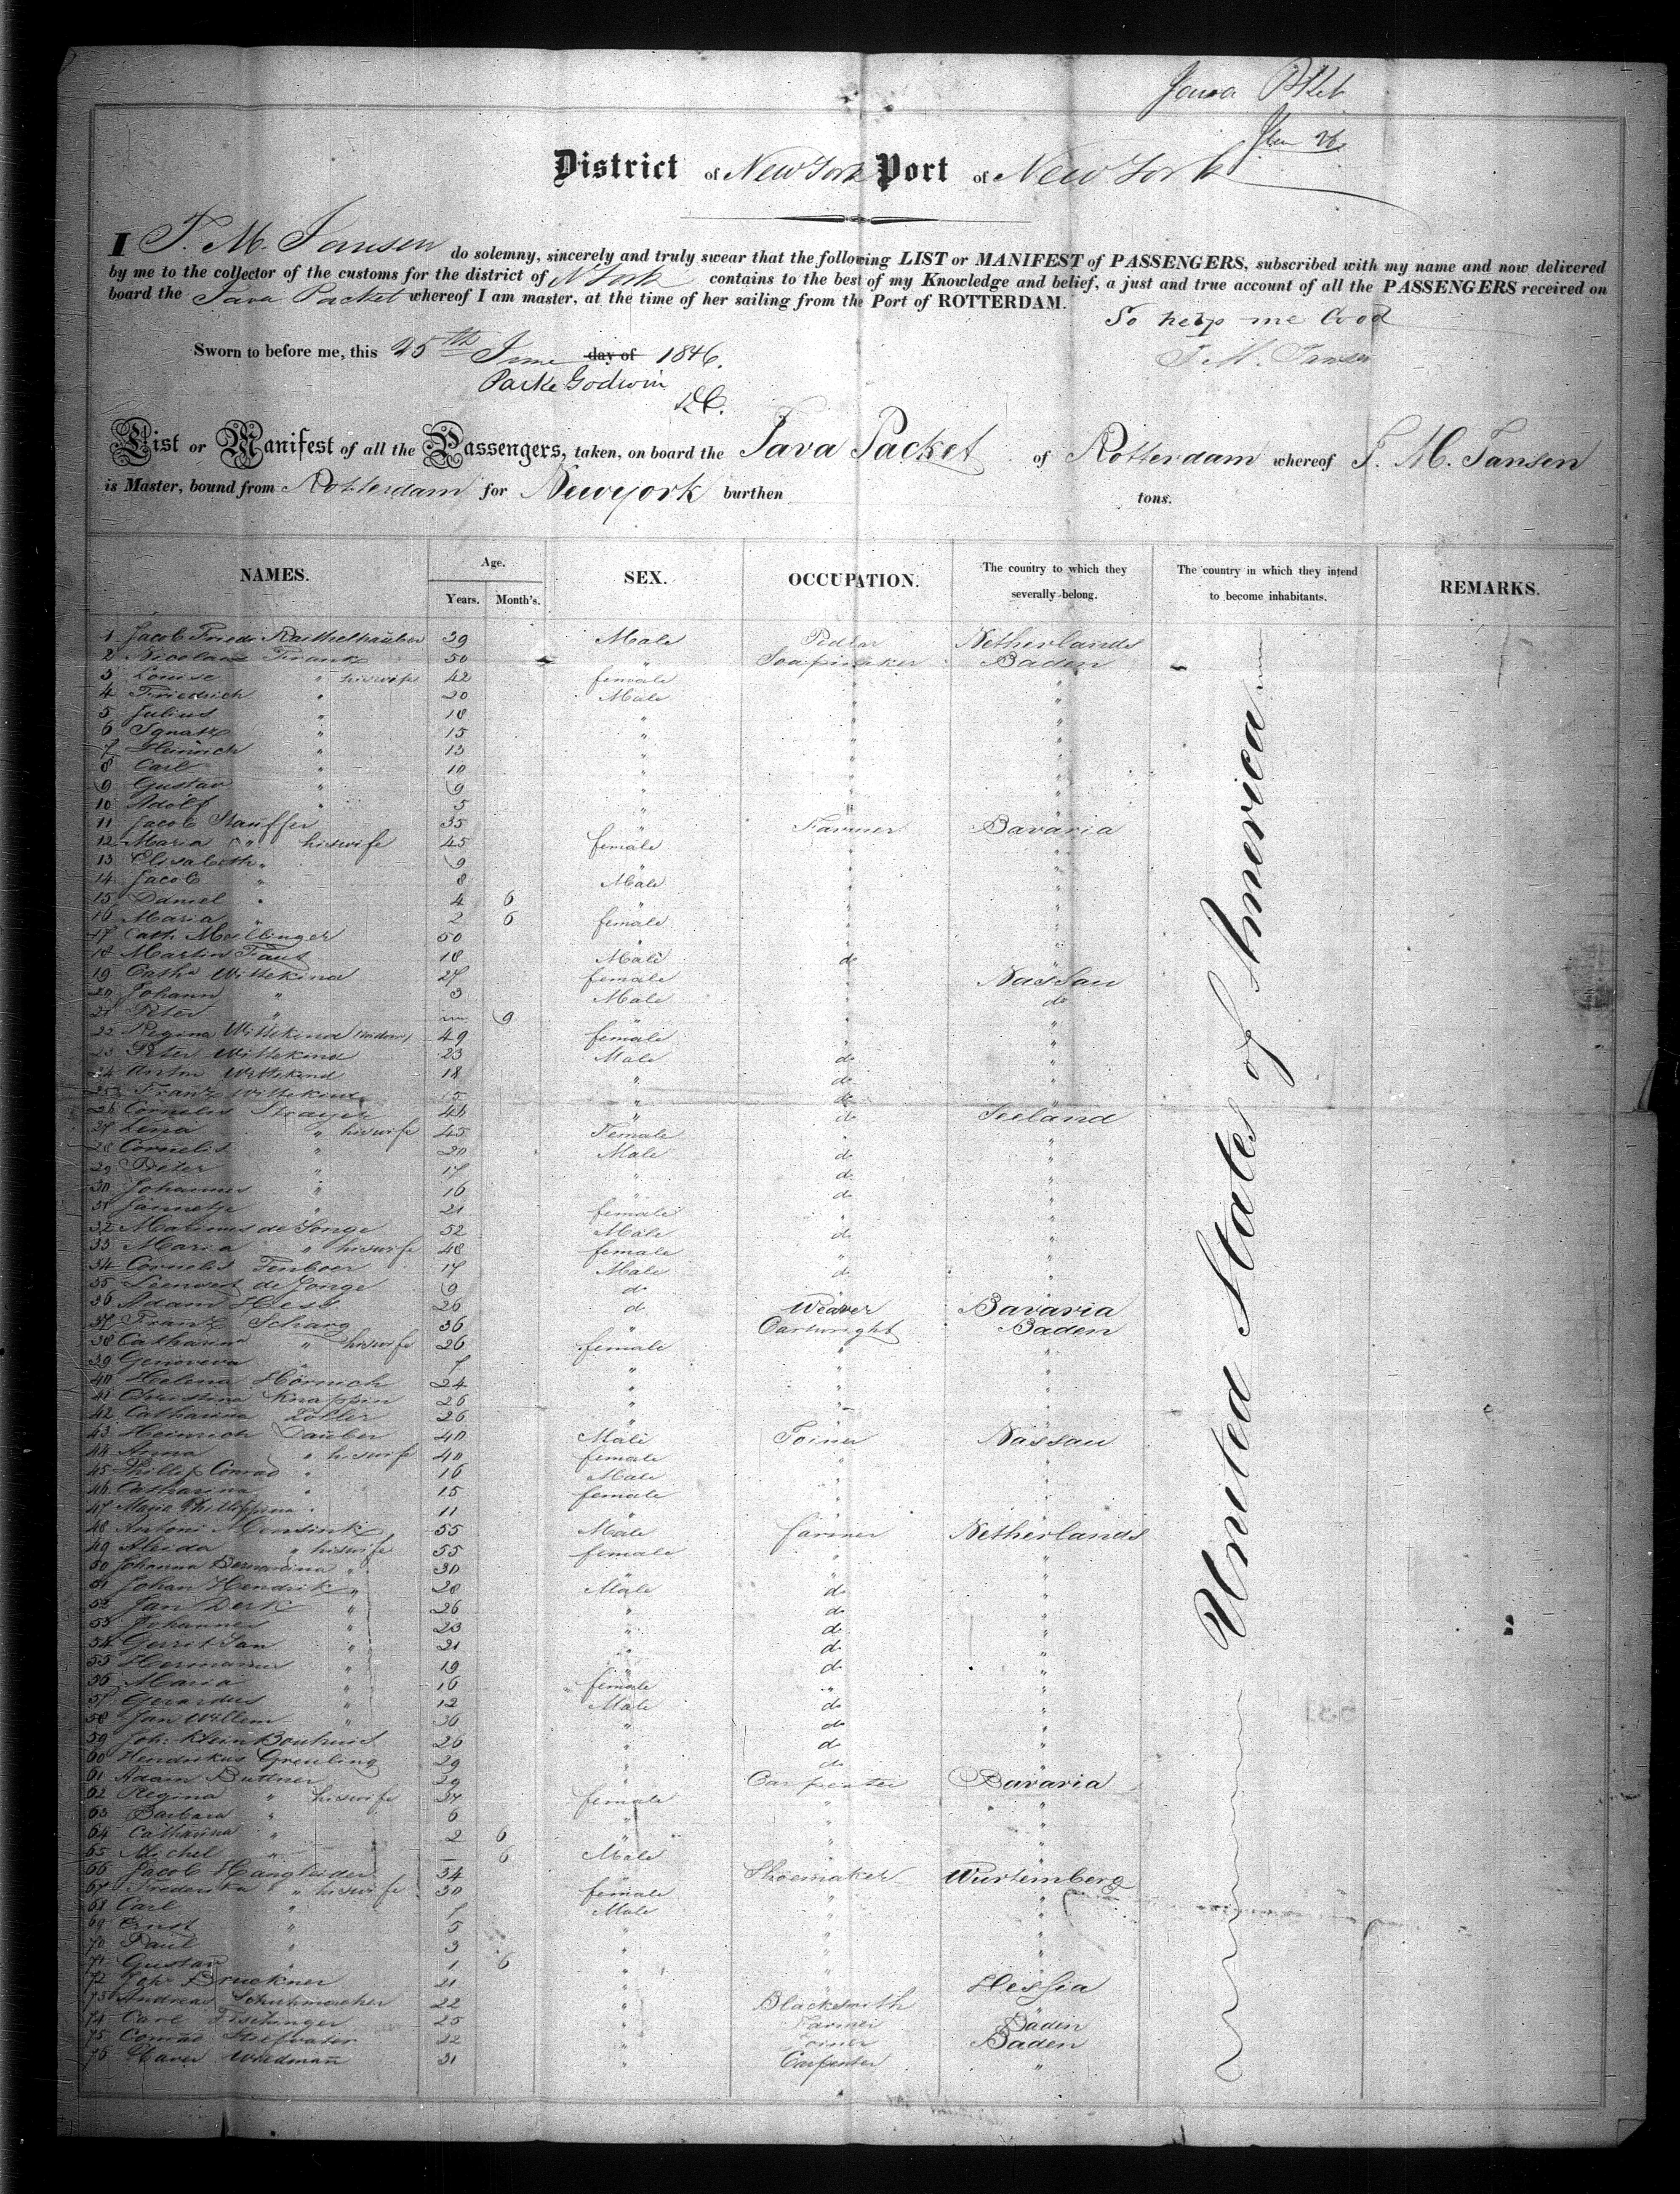 Java Pkt
26
District of New York Port of New York
I T. M. Jansen do solemny, sincerely and truly swear that the following LIST or MANIFEST of PASSENGERS, subscribed with my name and now delivered
by me to the collector of the customs for the district of N York contains to the best of my Knowledge and belief, a just and true account of all the PASSENGERS received on
board the Java Packet whereof I am master, at the time of her sailing from the Port of ROTTERDAM.
So help me God
T. M. Jansen
Sworn to before me, this 25th June day of 1846.
Parke Godwin
D C.
List or Manifest of all the Passengers, taken, on board the Java Packet of Rotterdam whereof T. M. Jansen
is Master, bound from Rotterdam for Newyork burthen tons.
NAMES. Age. Years. Month's. SEX. OCCUPATION. The country to which they severally belong. The country in which they intend to become inhabitants. REMARKS.
United States of America
1 Jacob Friedr Raithelhauber 39 Male Pedlar Netherlands
2 Nicolaus Frank 50 " Soapmaker Baden
3 Louise " his wife 42 female " "
4 Friedrich " 20 Male " "
5 Julius " 18 " " "
6 Ignatz " 15 " " "
7 Heinrich " 13 " " "
8 Carl " 10 " " "
9 Gustav " 9 " " "
10 Adolf " 5 " " "
11 Jacob Stauffer 35 " Farmer Bavaria
12 Maria " his wife 45 female " "
13 Elisabeth " 9 " " "
14 Jacob " 8 Male " "
15 Daniel " 4 6 " " "
16 Maria " 2 6 female " "
17 Cath Mollinger 50 " " "
18 Martin Faut 18 Male do "
19 Catha Wittekind 27 female " Nassau
20 Johann " 3 Male " do
21 Peter " 9 " " "
22 Regina Wittekind widow 49 female " "
23 Peter Wittekind 23 Male do "
24 Anton Wittekind 18 " do "
25 Franz Wittekind 15 " do "
26 Cornelis Strayer " do Seeland
27 Lena " his wife 45 Female " "
28 Cornelis " 20 Male do "
29 Pieter " 17 " do "
30 Johannes " 16 " do "
31 Jannetje " 21 female " "
32 Marinus de Jonge 52 Male do "
33 Maria " his wife 48 female " "
34 Cornelis Tenboer 17 Male do "
35 Leenard de Jonge 9 do "
36 Adam Hess 26 do Weaver Bavaria
37 Franz Scharg 36 " Cartwright Baden
38 Catharina " his wife 26 female " "
39 Genoveva " 7 " " "
40 Helena Hornich 24 " " "
41 Christina Knappin 26 " " "
42 Catharina Zoller 26 " " "
43 Heinrich Dauber 40 Male Joiner Nassau
44 Anna " his wife 40 female " "
45 Phillip Conrad " 16 Male " "
46 Catharina " 15 female " "
47 Maria Phillippina " 11 " " "
48 Antoni Mensink 55 Male farmer Netherlands
49 Aleida " his wife 55 female " "
50 Johanna Bernardina " 30 " " "
51 Johan Hendrik " 28 Male do "
52 Jan Derk " 26 " do "
53 Johannes " 23 " do "
54 Gerrit Jan " 21 " do "
55 Hermanus " 19 " do "
56 Maria " 16 female " "
57 Gerardus " 12 Male do "
58 Jan Willem " 36 " do "
59 Joh: Klein Bouhuis 26 " do "
60 Hendrikus Greuling 29 " do "
61 Adam Buttner 29 " Carpenter Bavaria
62 Regina " his wife 27 female " "
63 Barbara " 6 " " "
64 Catharina " 2 6 " " "
65 Michel " — 6 Male " "
66 Jacob Hangleider 34 " Shoemaker Wurtemberg
67 Frederika " his wife 30 female " "
68 Carl " 7 Male " "
69 Ernst " 5 " " "
70 Paul " 3 " " "
71 Gustav " 1 6 " " "
72 Joh. Bruckner 21 " " Hessia
73 Andreas Schuhmacher 22 " Blacksmith "
74 Carl Fischinger 25 " Farmer Baden
75 Conrad Stiefvater 22 " Joiner Baden
76 Xaver Wiedmann 31 " Carpenter "